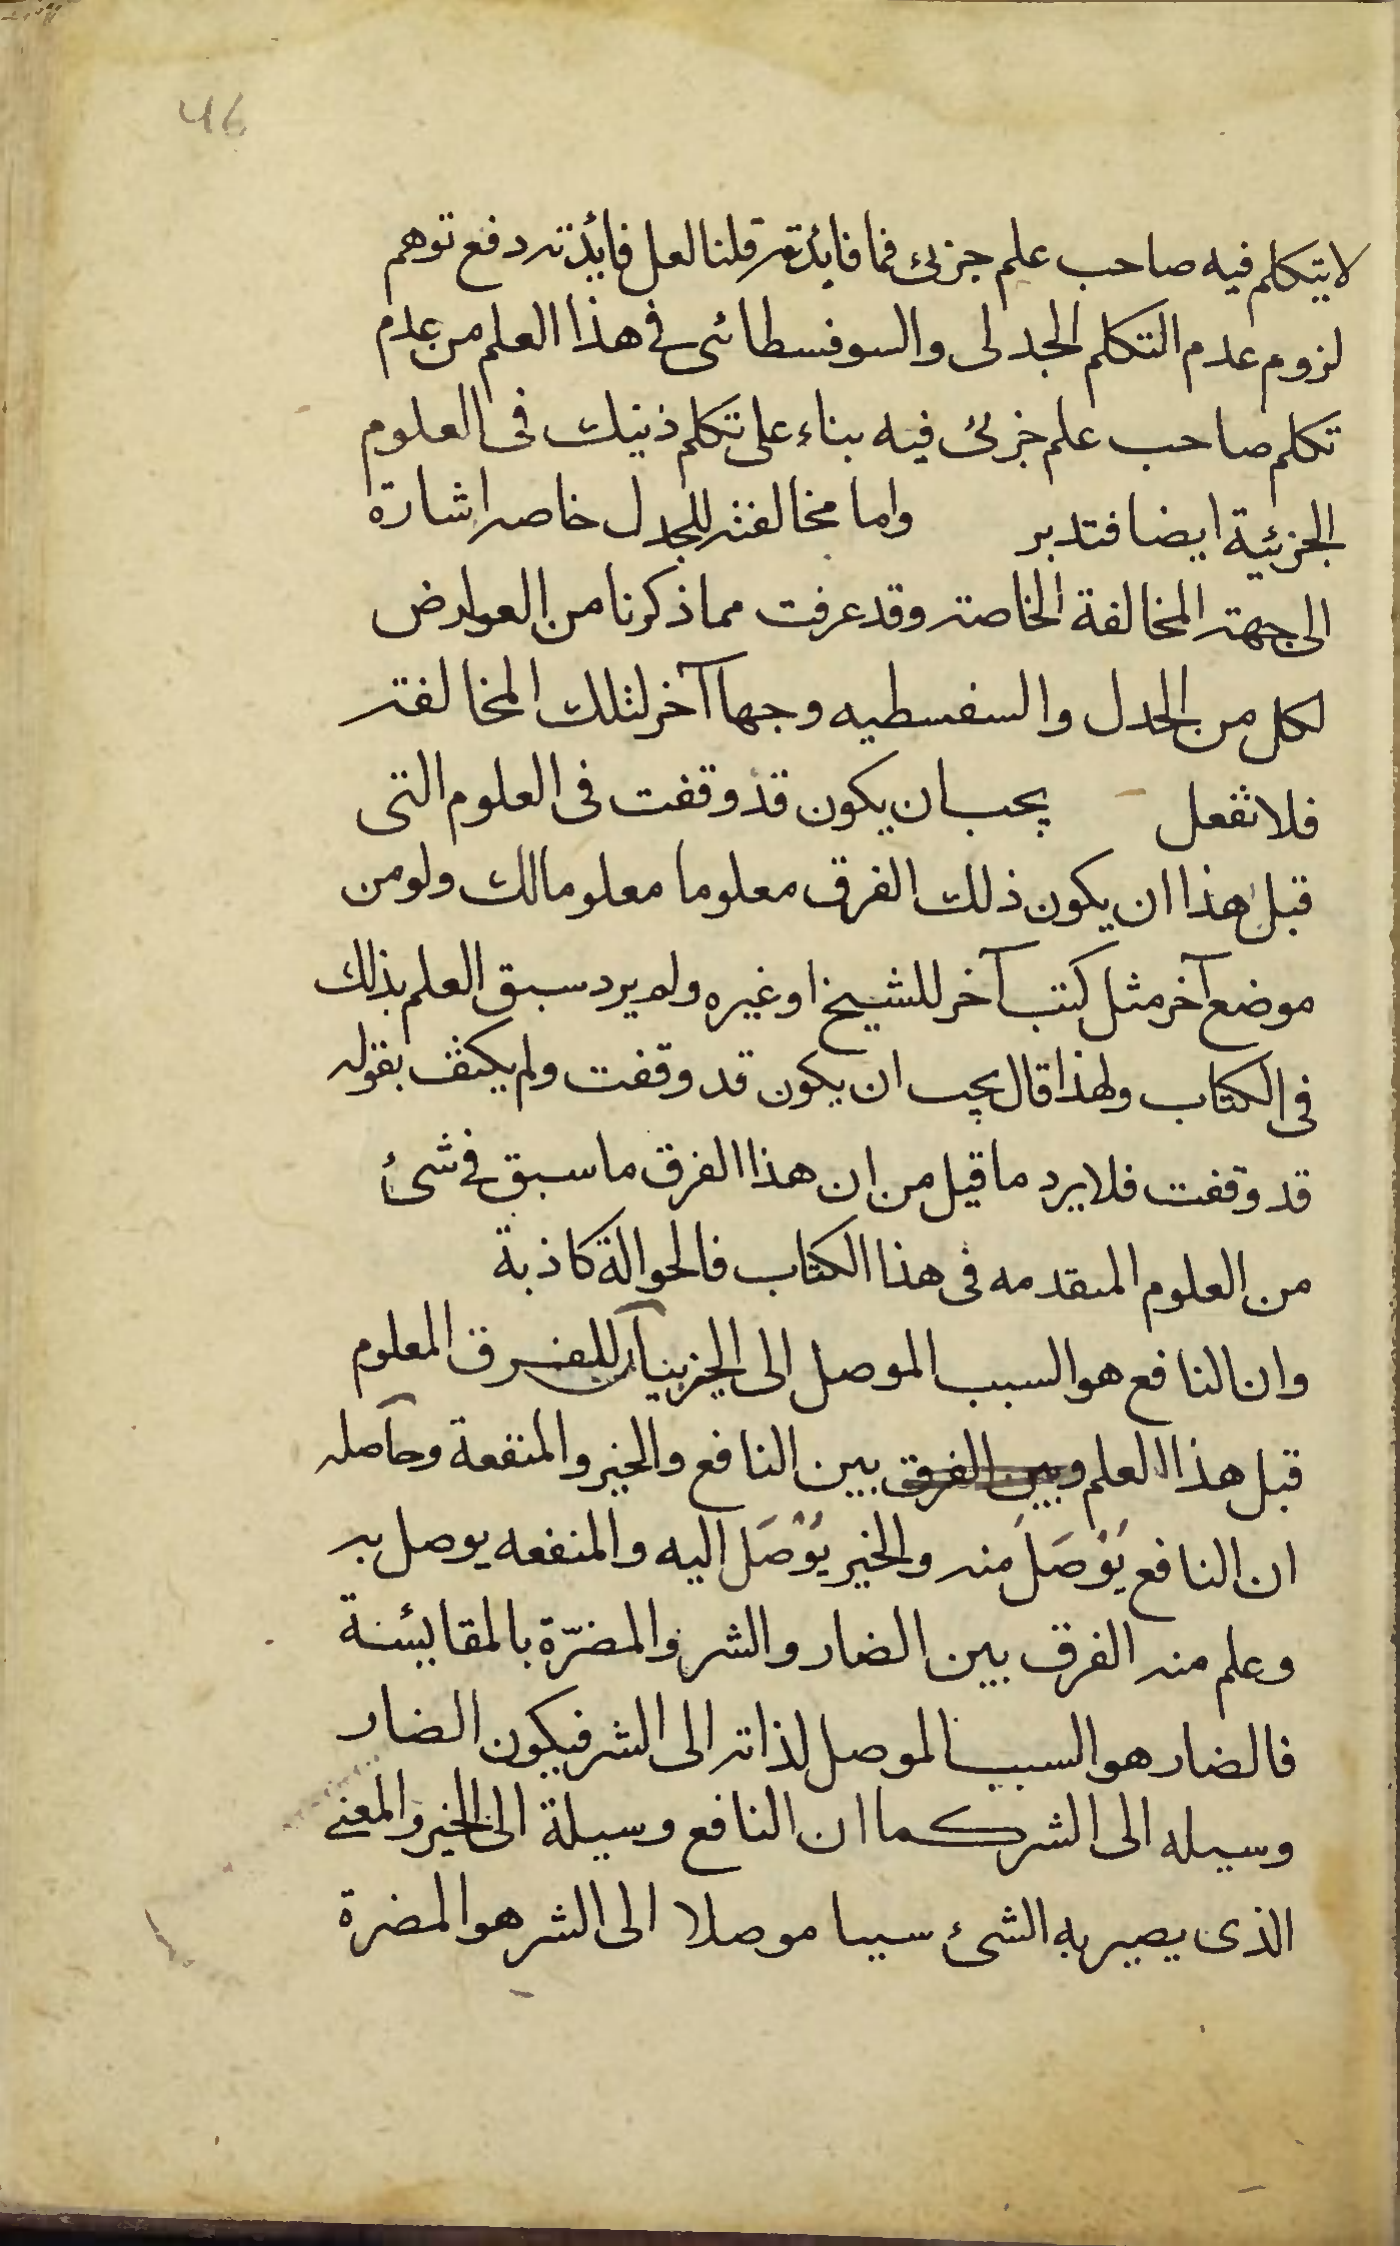 46
لا يتكلم فيه صاحب علم جزئ فما فائدته قلنا لعل فائدته دفع توهم
لزوم عدم التكلم الجدلى والسوفسطائى فى هذا العلم من عدم
تكلم صاحب علم جزئ فيه بناء على تكلم ذينك فى العلوم
الجزئية ايضا فتدبر واما مخالفته للجدل خاصه اشارة
الى جهته المخالفة الخاصته وقد عرفت مما ذكرنا من العوارض
لكل من الجدل والسفسطيه وجها آخر لتلك المخالفته
فلا تفعل يجب ان يكون قد وقفت فى العلوم التى
قبل هذا ان يكون ذلك الفرق معلوما معلوما لك ولو من
موضع آخر مثل كتب آخر للشيخ او غيره ولم يرد سبق العلم بذلك
فى الكتاب ولهذا قال يجب ان يكون قد وقفت ولم يكتف بقوله
قد وقفت فلا يرد ما قيل من ان هذا الفرق ما سبق فى شئ
من العلوم المتقدمه فى هذا الكتاب فالحوالة كاذبة
وان النافع هو السبب الموصل الى الخير بيان للفرق المعلوم
قبل هذا العلم وبين الفرق بين النافع والخير والمنفعة وحاصله
ان النافع يُوْصَلَ منه والخير يُوْصَل اليه والمنفعه يوصل به
وعلم منه الفرق بين الضار والشر والمضرّة بالمقايسة
فالضار هو السبب الموصل لذاته الى الشر فيكون الضار
وسيله الى الشر كما ان النافع وسيلة الى الخير والمعنى
الذى يصير به الشئ سببا موصلا الى الشر هو المضرة